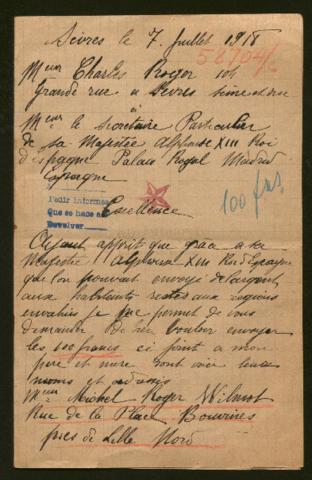 Sèvres le 7 Juillet 1918
52904/6
Meur Charles Roger 101
Grande rue a Sevres Seine et Oise
à
Meur le Secrétaire Particulier
de Sa Majestée Alphonse XIII Roi
d'Espagne Palais Royal Madrid
Espagne
Pedir informes
Que se hace al
Devolver
100 frs
Excellence
Ayant apprit que grace a sa
Majestée Alphonse XIII Roi d'Espagne
que l'on pouvait envoyé de l'argent
aux habitants restés aux régions
envahies je me permet de vous
demander De bien vouloir envoyer
les 100 francs ci joint a mon
pere et mere dont voici leurs
noms et adresses
Meur Michel Roger Wilmot
Rue de la Place Bouvines
près de Lille Nord